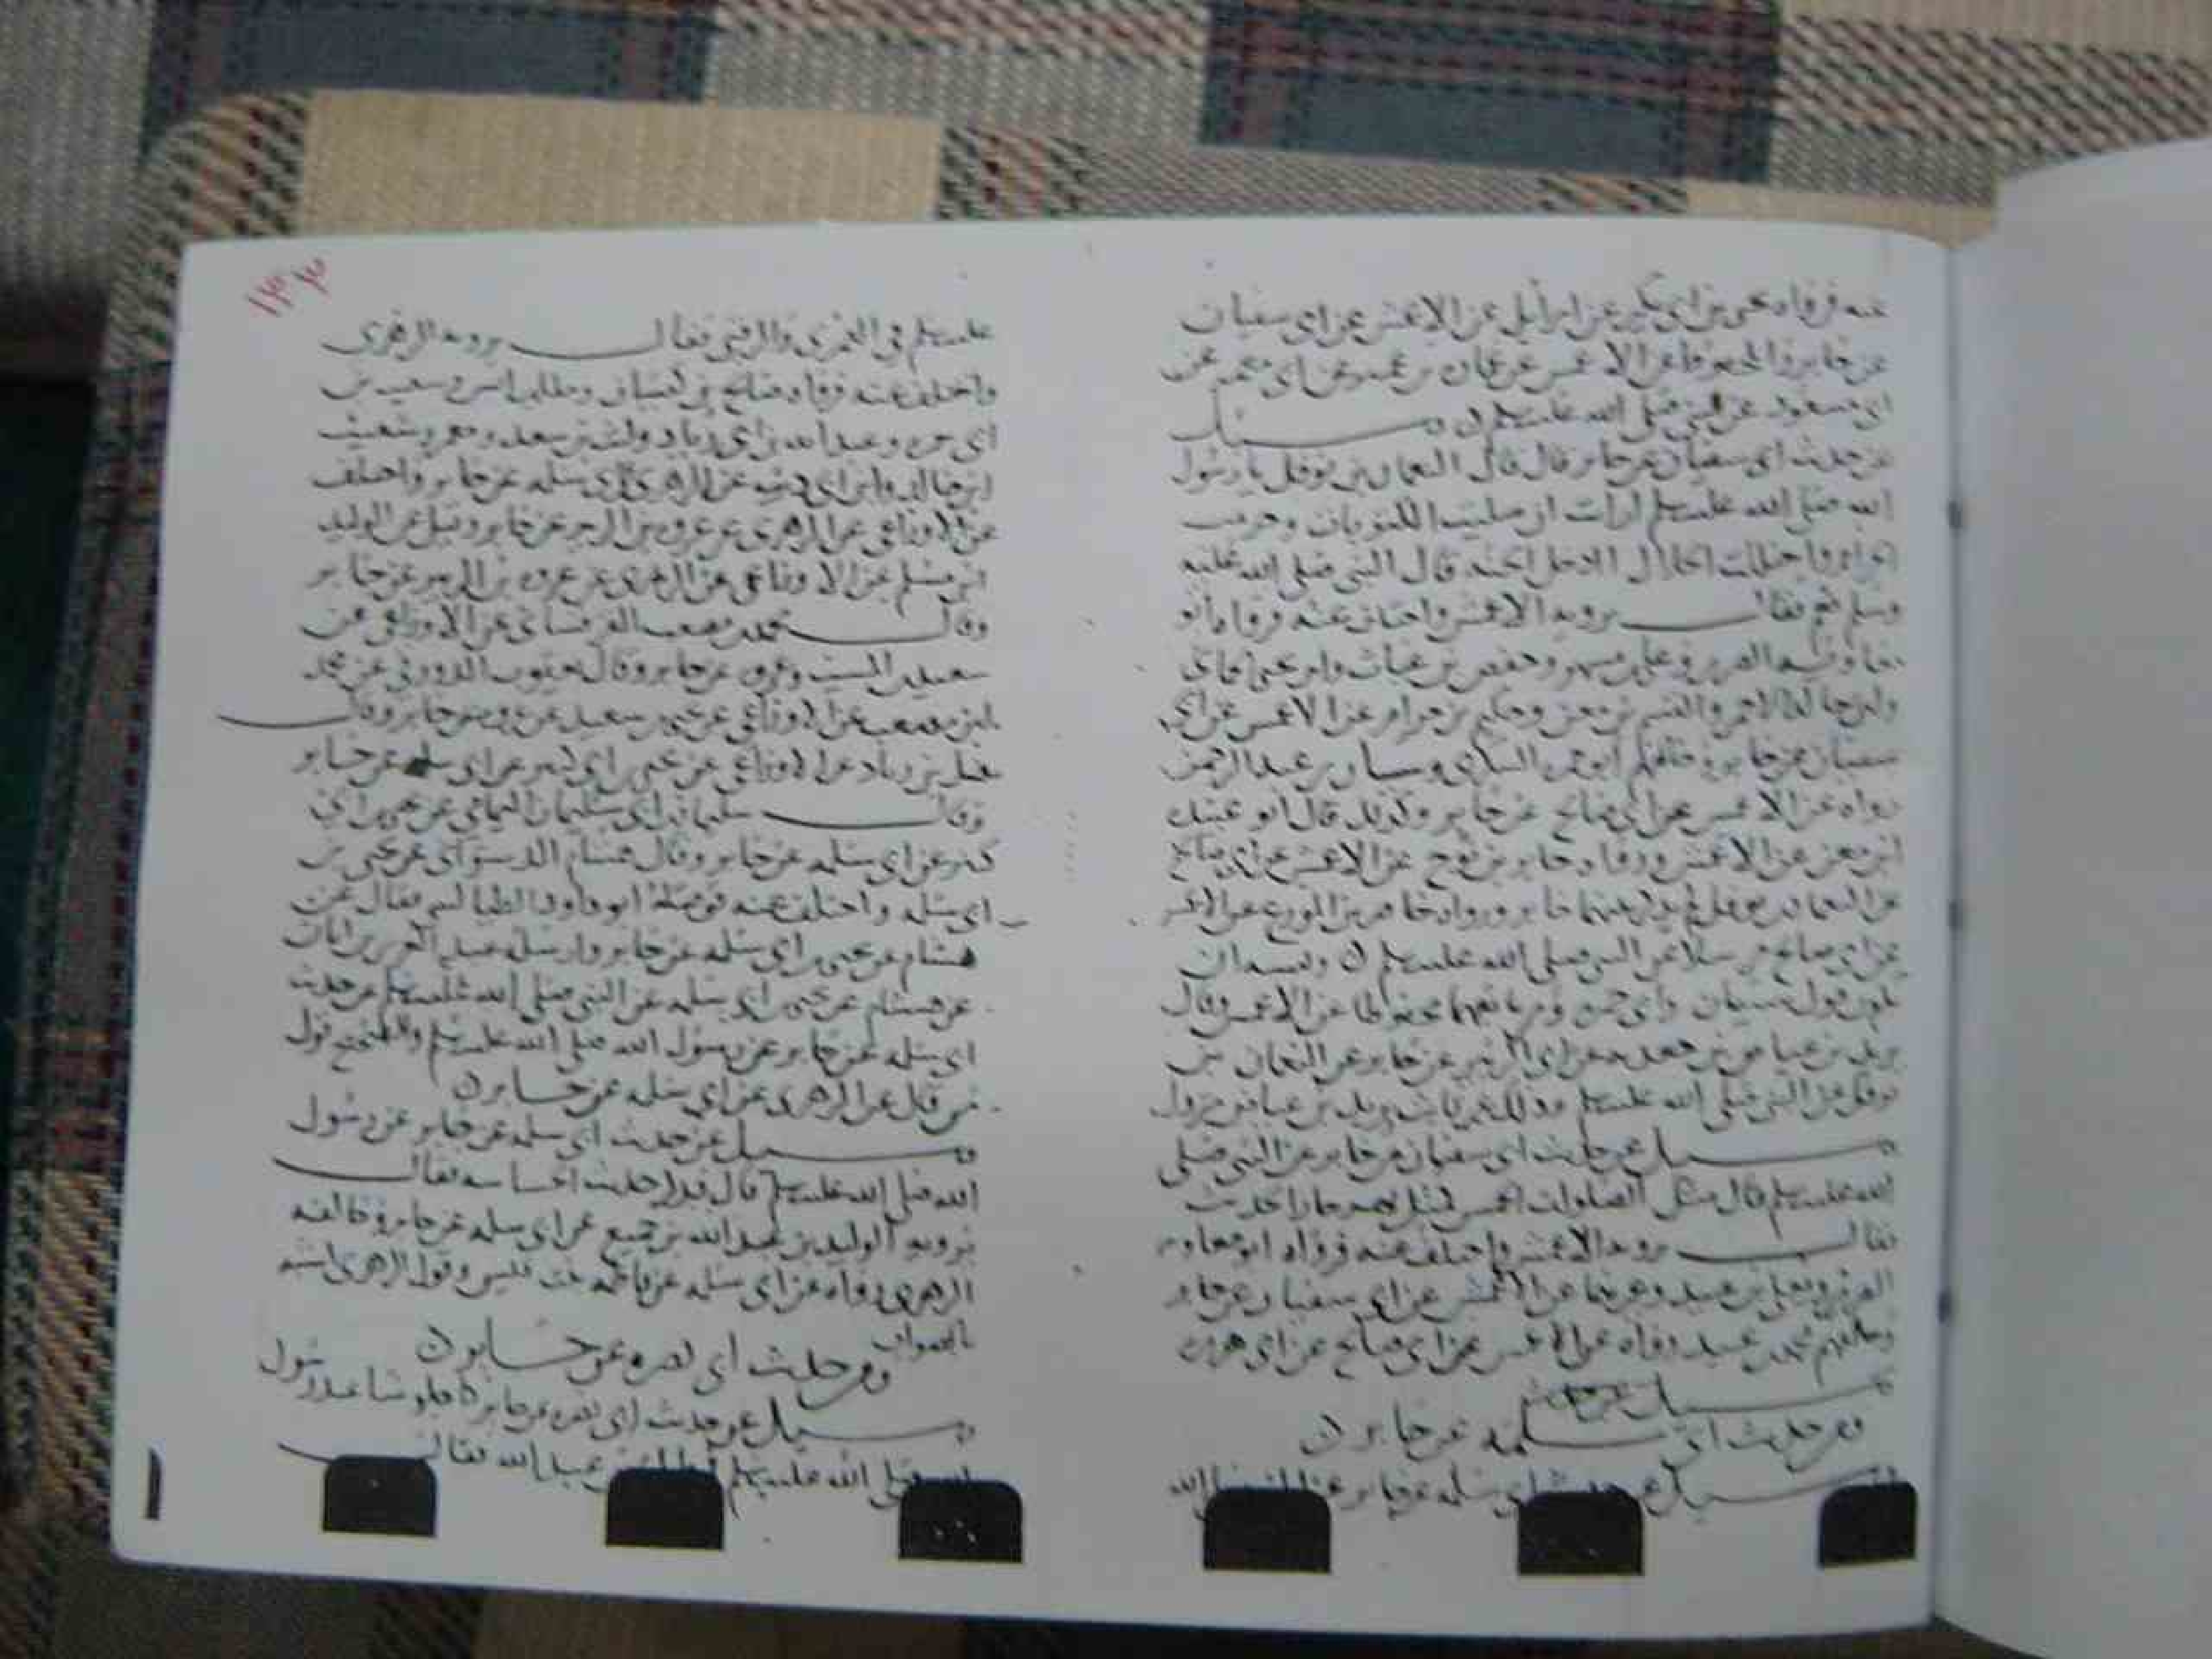 عنه فرواه يحيى بن ابي بكير عن اسرائيل عن الاعمش عن ابي سفيان
عن جابر والمحفوظ عن الاعمش عن عمارة بن عمير عن ابي معمر عن
ابي مسعود عن النبي صلى الله عليه وسلم ن وسئل
عن حديث ابي سفيان عن جابر قال قال النعمان بن نوفل يا رسول
الله صلى الله عليه وسلم ارايت ان صليت المكتوبات وحرمت
الحرام واحللت الحلال اادخل الجنة قال النبي صلى الله عليه
وسلم نعم فقال يرويه الاعمش واختلف عنه فرواه ابو
معاوية الضرير وعلي بن مسهر وحفص بن غياث وابو يحيى
وابو خالد الاحمر والقسم بن معن وحكيم عن الاعمش عن ابي
سفيان عن جابر وخالفهم ابو حمزة السكري و عبد الرحمن
رواه عن الاعمش عن ابي صالح عن جابر وكذلك قال ابو عبيدة
ابن معن عن الاعمش ورواه جابر بن نوح عن الاعمش عن ابي صالح
عن النعمان بن نوفل لم يذكر بينهما جابر ورواه محاضر بن المورع عن الاعمش
عن ابي صالح مرسلا عن النبي صلى الله عليه وسلم ن ويشبه ان
يكون قول شيبان وابي حمزة ومن تابعهما محفوظا عن الاعمش وقال
يزيد بن عياض بن جعدبة عن ابي الزبير عن جابر عن النعمان بن
نوفل عن النبي صلى الله عليه وسلم وذلك غير ثابت يزيد بن عياض متروك
وسئل عن حديث ابي سفيان عن جابر عن النبي صلى
الله عليه وسلم قال مثل الصلوات الخمس كمثل نهر جار الحديث
فقال يرويه الاعمش واختلف عنه فرواه ابو معاوية
الضرير ويعلى بن عبيد وغيرهما عن الاعمش عن ابي سفيان عن جابر
وخالفهم محمد بن عبيد رواه عن الاعمش عن ابي صالح عن ابي هريرة
وسئل عن حديث
ومن حديث ابي سلمة عن جابر ن
وسئل عن حديث ابي سلمة عن جابر عن النبي صلى الله
١٣٣
عليه وسلم في العمرى والرقبى فقال يرويه الزهري
واختلف عنه فرواه صالح بن كيسان ومالك بن انس وشعيب بن
ابي حمزة وعبد الله بن ابي زياد وليث بن سعد
ابن خالد وابن ابي ذئب عن الزهري عن ابي سلمة عن جابر واختلف
عن الاوزاعي عن الزهري عن عروة بن الزبير عن جابر وقيل عن الوليد
ابن مسلم عن الاوزاعي عن الزهري عن عروة بن الزبير عن جابر
وقال محمد بن مصعب القرقساني عن الاوزاعي عن
سعيد بن المسيب وعروة عن جابر وقال يعقوب الدورقي عن محمد
ابن مصعب عن الاوزاعي عن يحيى بن سعيد عن عروة عن جابر وقال
هقل بن زياد عن الاوزاعي عن يحيى بن ابي كثير عن ابي سلمة عن جابر
وقال سليمان بن ابي سليمان اليمامي عن يحيى بن ابي
كثير عن ابي سلمة عن جابر وقال هشام الدستوائي عن يحيى بن
ابي سلمة واختلف عنه فوصله ابو داود الطيالسي فقال عن
هشام عن يحيى عن ابي سلمة عن جابر وارسله عبد العزيز بن ابان
عن هشام عن يحيى عن ابي سلمة عن النبي صلى الله عليه وسلم عن حديث
ابي سلمة عن جابر عن رسول الله صلى الله عليه وسلم والصحيح قول
من قال عن الزهري عن ابي سلمة عن جابر ن
وسئل عن حديث ابي سلمة عن جابر عن رسول
الله صلى الله عليه وسلم قال فذكر حديث الجساسة فقال
يرويه الوليد بن عبد الله بن جميع عن ابي سلمة عن جابر وخالفه
الزهري رواه عن ابي سلمة عن فاطمة بنت قيس وقول الزهري اشبه
بالصواب
ومن حديث ابي نضرة عن جابر ن
وسئل عن حديث ابي نضرة عن جابر رسول
الله صلى الله عليه وسلم عبيد الله فقال